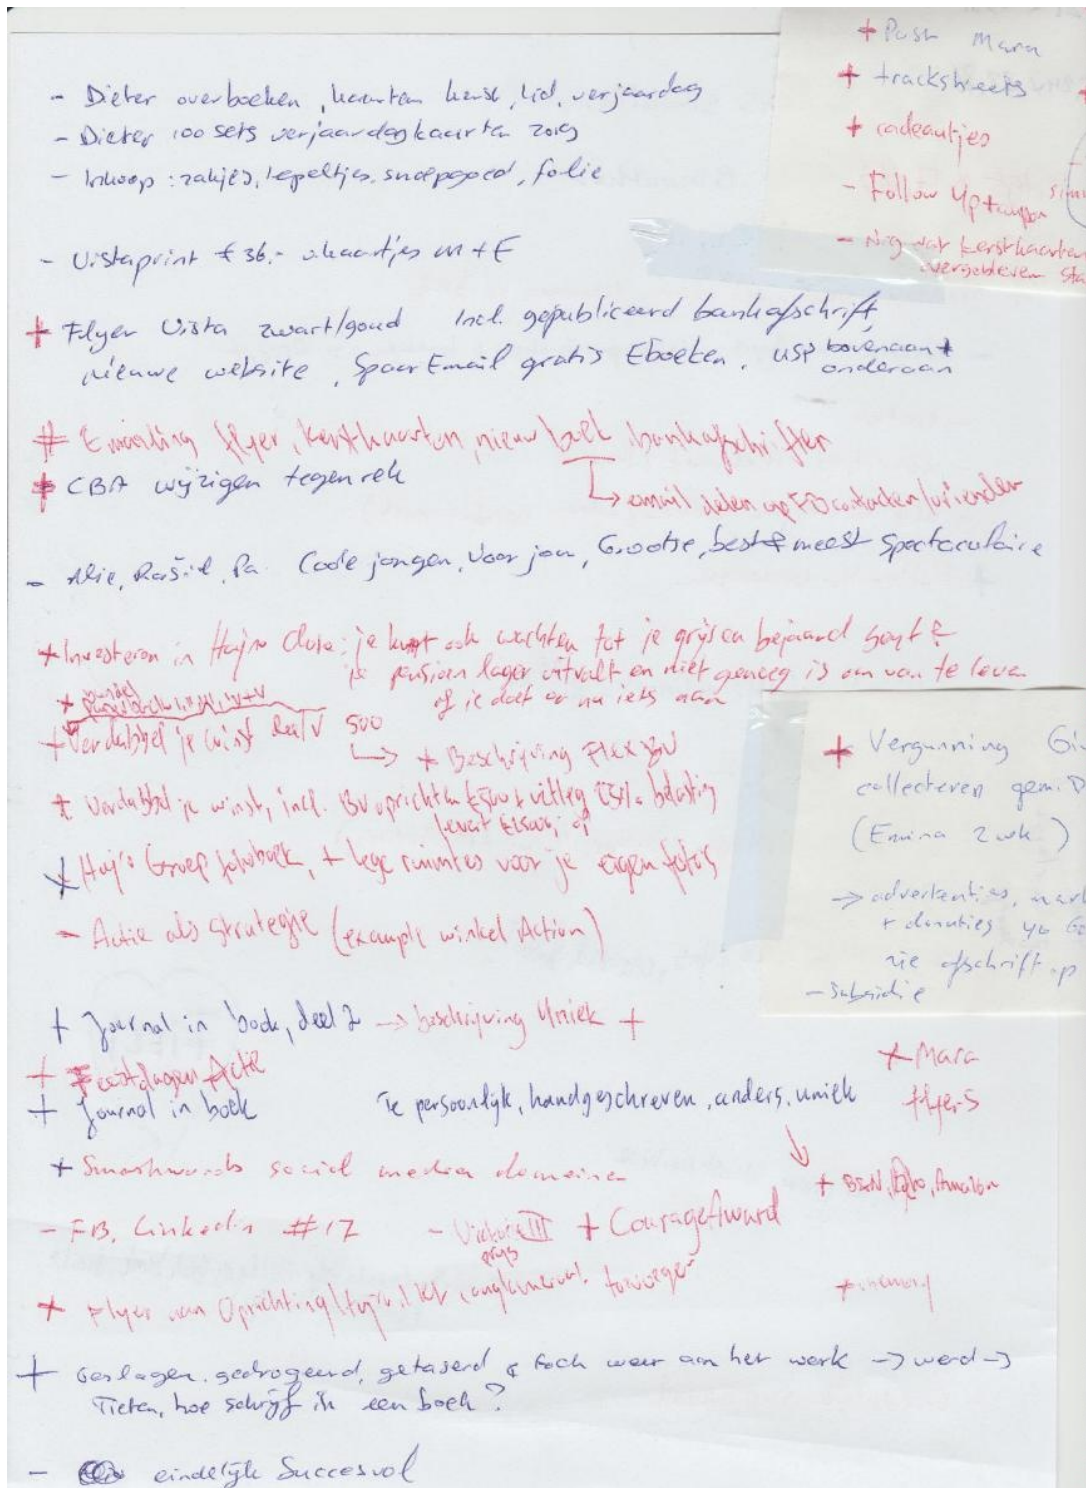 + Push Mara
+ tracksheets
+ cadeautjes
- Follow Up +
- Nog wat kerstkaarten
overgebleven
- Dieter overboeken, kaarten kerst, lid, verjaardag
- Dieter 100 sets verjaardagkaarten 2019
- Inkoop: zakjes, lepeltjes, snoepgoed, folie
- Vistaprint € 36,- vkaartjes M + E
+ Flyer Vista zwart/goud Incl. gepubliceerd bankafschrift,
nieuwe website, Spaar Email gratis Eboeken, USP bovenaan +
onderaan
# Emailing flyer, kerstkaarten, nieuw boek, bankafschriften
+ CBA wijzigen tegenrek
email delen op FB contacten/vrienden
- Alie, Pa. Code jongen, Voor jou, Grootse, beste meest spectaculaire
+ Investeren in Hajro : je kunt ook wachten tot je grijs en bejaard bent &
je pensioen lager uitvalt en niet genoeg is om van te leven
of je doet er nu iets aan
+ Verdubbel je winst 500
+ Beschrijving Flex BV
+ Verdubbel je winst, incl. BV oprichten + uitleg 25% belasting
+ Hajro Groep fotoboek, + lege ruimtes voor je eigen foto's
- Actie als strategie (example winkel Action)
+ Vergunning
collecteren gem. D
(Emina 2 wk)
-> advertenties,
+ donaties
zie afschrift
- Subsidie
+ Journal in boek, deel 2 -> beschrijving Uniek +
+ Feestdagen Actie
+ Journal in boek Te persoonlijk, handgeschreven, anders, uniek
+ Mara
flyers
+ Smashwords social media domeinen
+ B&N, Kobo, Amazon
- FB, LinkedIn #17 - Victoria III + CourageAward
prijs
+ Flyer aan Oprichting toevoegen
+ memory
+ Geslagen, gedrogeerd, getaserd & toch weer aan het werk -> werd ->
Tieten, hoe schrijf ik een boek?
- eindelijk Succesvol